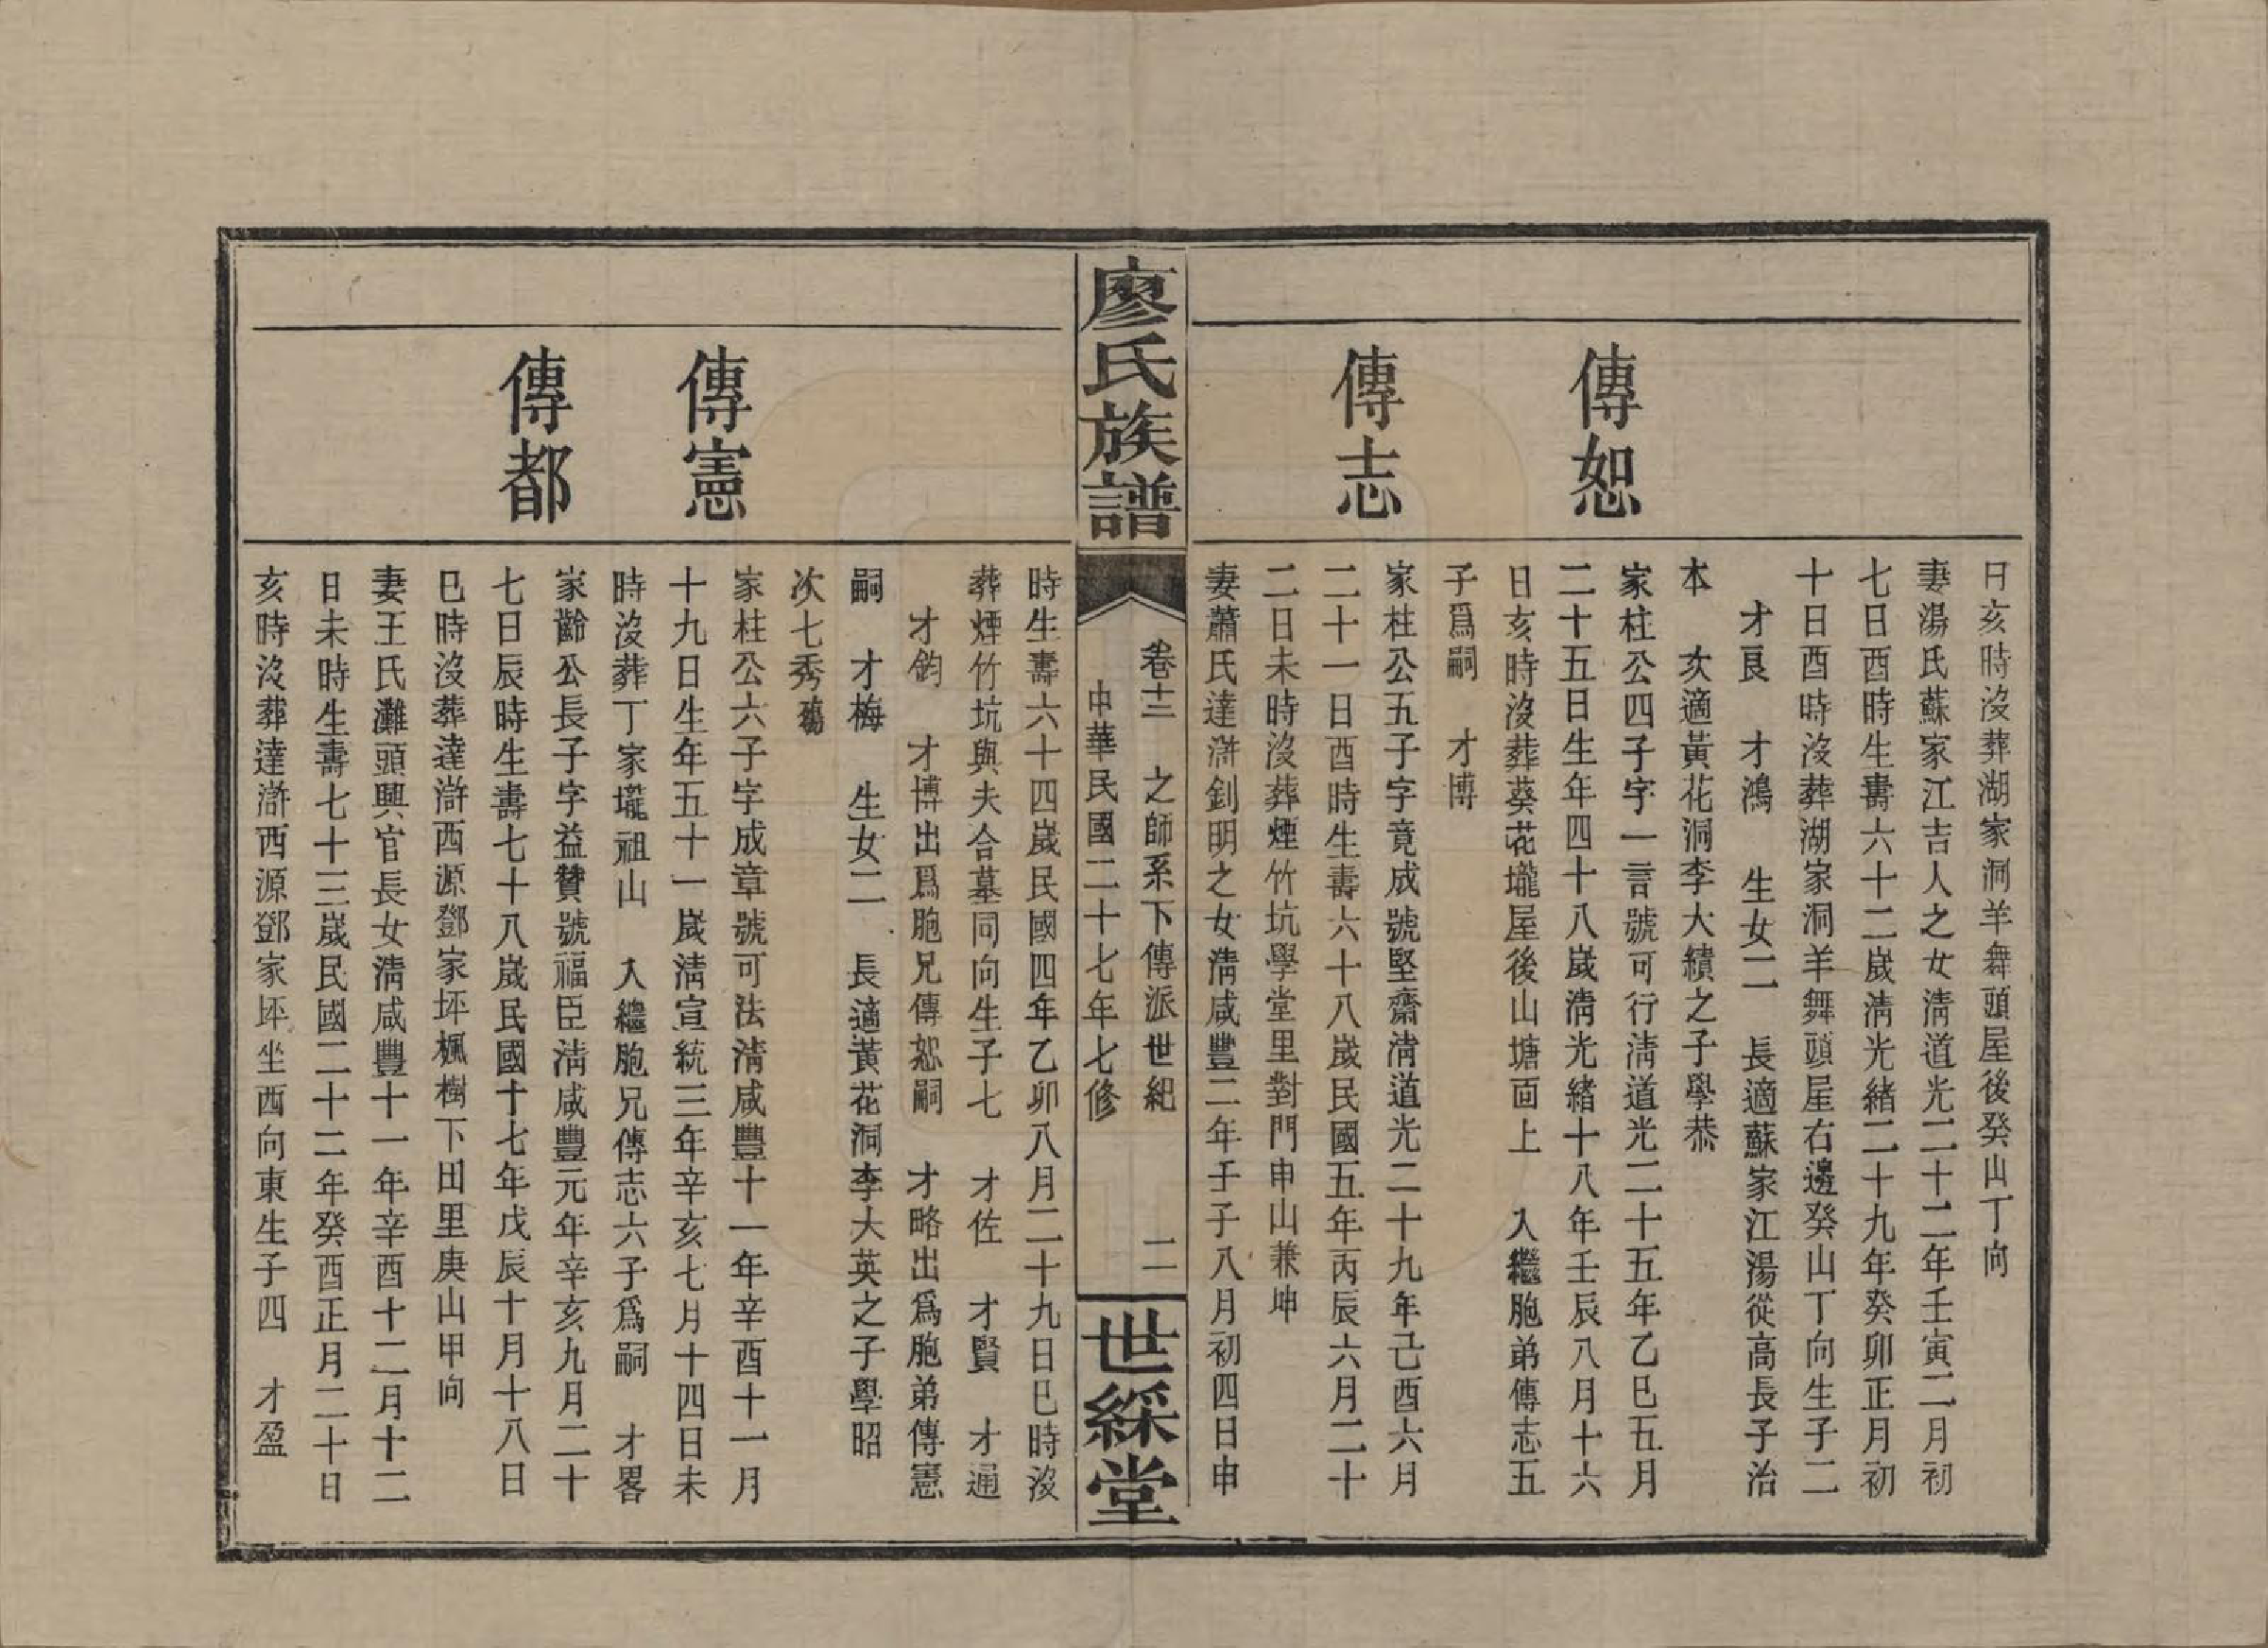 日亥時沒葬湖家洞羊舞頭屋後癸山丁向
妻湯氏蘇家江吉人之女淸道光二十二年壬寅二月初
七日酉時生壽六十二歲淸光緒二十九年癸卯正月初
十日酉時沒葬湖家洞羊舞頭屋右邊癸山丁向生子二
才良 才鴻 生女二 長適蘇家江湯從高長子治
本 次適黃花洞李大績之子學恭
傳恕
家柱公四子字一言號可行淸道光二十五年乙巳五月
二十五日生年四十八歲淸光緒十八年壬辰八月十六
日亥時沒葬葵花壠屋後山塘面上 入繼胞弟傳志五
子爲嗣 才博
傳志
家柱公五子字竟成號堅齋淸道光二十九年己酉六月
二十一日酉時生壽六十八歲民國五年丙辰六月二十
二日未時沒葬煙竹坑學堂里對門申山兼坤
妻蕭氏達滸釗明之女淸咸豐二年壬子八月初四日申
廖氏族譜
卷十三 之師系下傳派世紀 二
中華民國二十七年七修
世綵堂
時生壽六十四歲民國四年乙卯八月二十九日巳時沒
葬煙竹坑與夫合墓同向生子七 才佐 才賢 才通
才鈞 才博出爲胞兄傳恕嗣 才略出爲胞弟傳憲
嗣 才梅 生女二 長適黃花洞李大英之子學昭
次七秀
傳憲
家柱公六子字成章號可法淸咸豐十一年辛酉十一月
十九日生年五十一歲淸宣統三年辛亥七月十四日未
時沒葬丁家壠祖山 入繼胞兄傳志六子爲嗣 才畧
傳都
家齡公長子字益贊號福臣淸咸豐元年辛亥九月二十
七日辰時生壽七十八歲民國十七年戊辰十月十八日
巳時沒葬達滸西源鄧家坪楓樹下田里庚山甲向
妻王氏灘頭興官長女淸咸豐十一年辛酉十二月十二
日未時生壽七十三歲民國二十二年癸酉正月二十日
亥時沒葬達滸西源鄧家坪坐西向東生子四 才盈